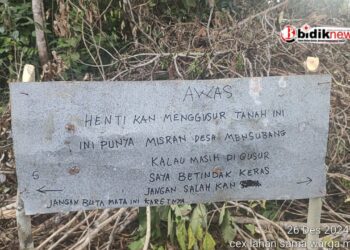 bidiknews
AWAS
HENTI KAN MENGGUSUR TANAH INI
INI PUNYA MISRAN DESA MENSUBANG
KALAU MASIH DI GUSUR
SAYA BETINDAK KERAS
JANGAN SALAH KAN
JANGAN BUTA MATA INI KARETNYA
26 Des 2024